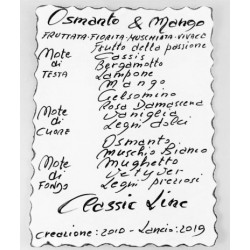 Osmanto & Mango
FRUTTATA-FIORITA-MUSCHIATA-VIVACE
Note di TESTA
Frutto della passione
Cassis
Bergamotto
Lampone
Mango
Note di CUORE
Gelsomino
Rosa Damascena
Vaniglia
Legni dolci
Note di FONDO
Osmanto
Muschio Bianco
Mughetto
Vetyver
Legni preziosi
Classic Line
Creazione: 2010 - Lancio: 2019